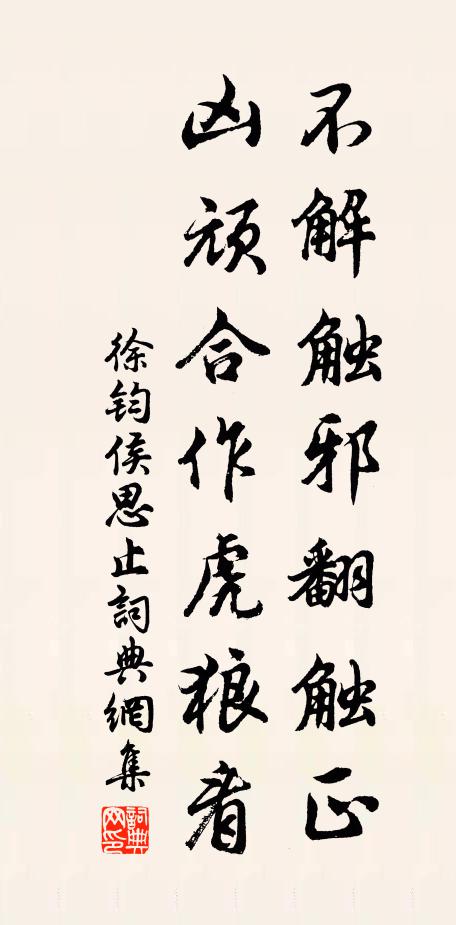 不解触邪翻触正
凶顽合作虎狼看
徐钧侯思止詞典網集
詞典网印